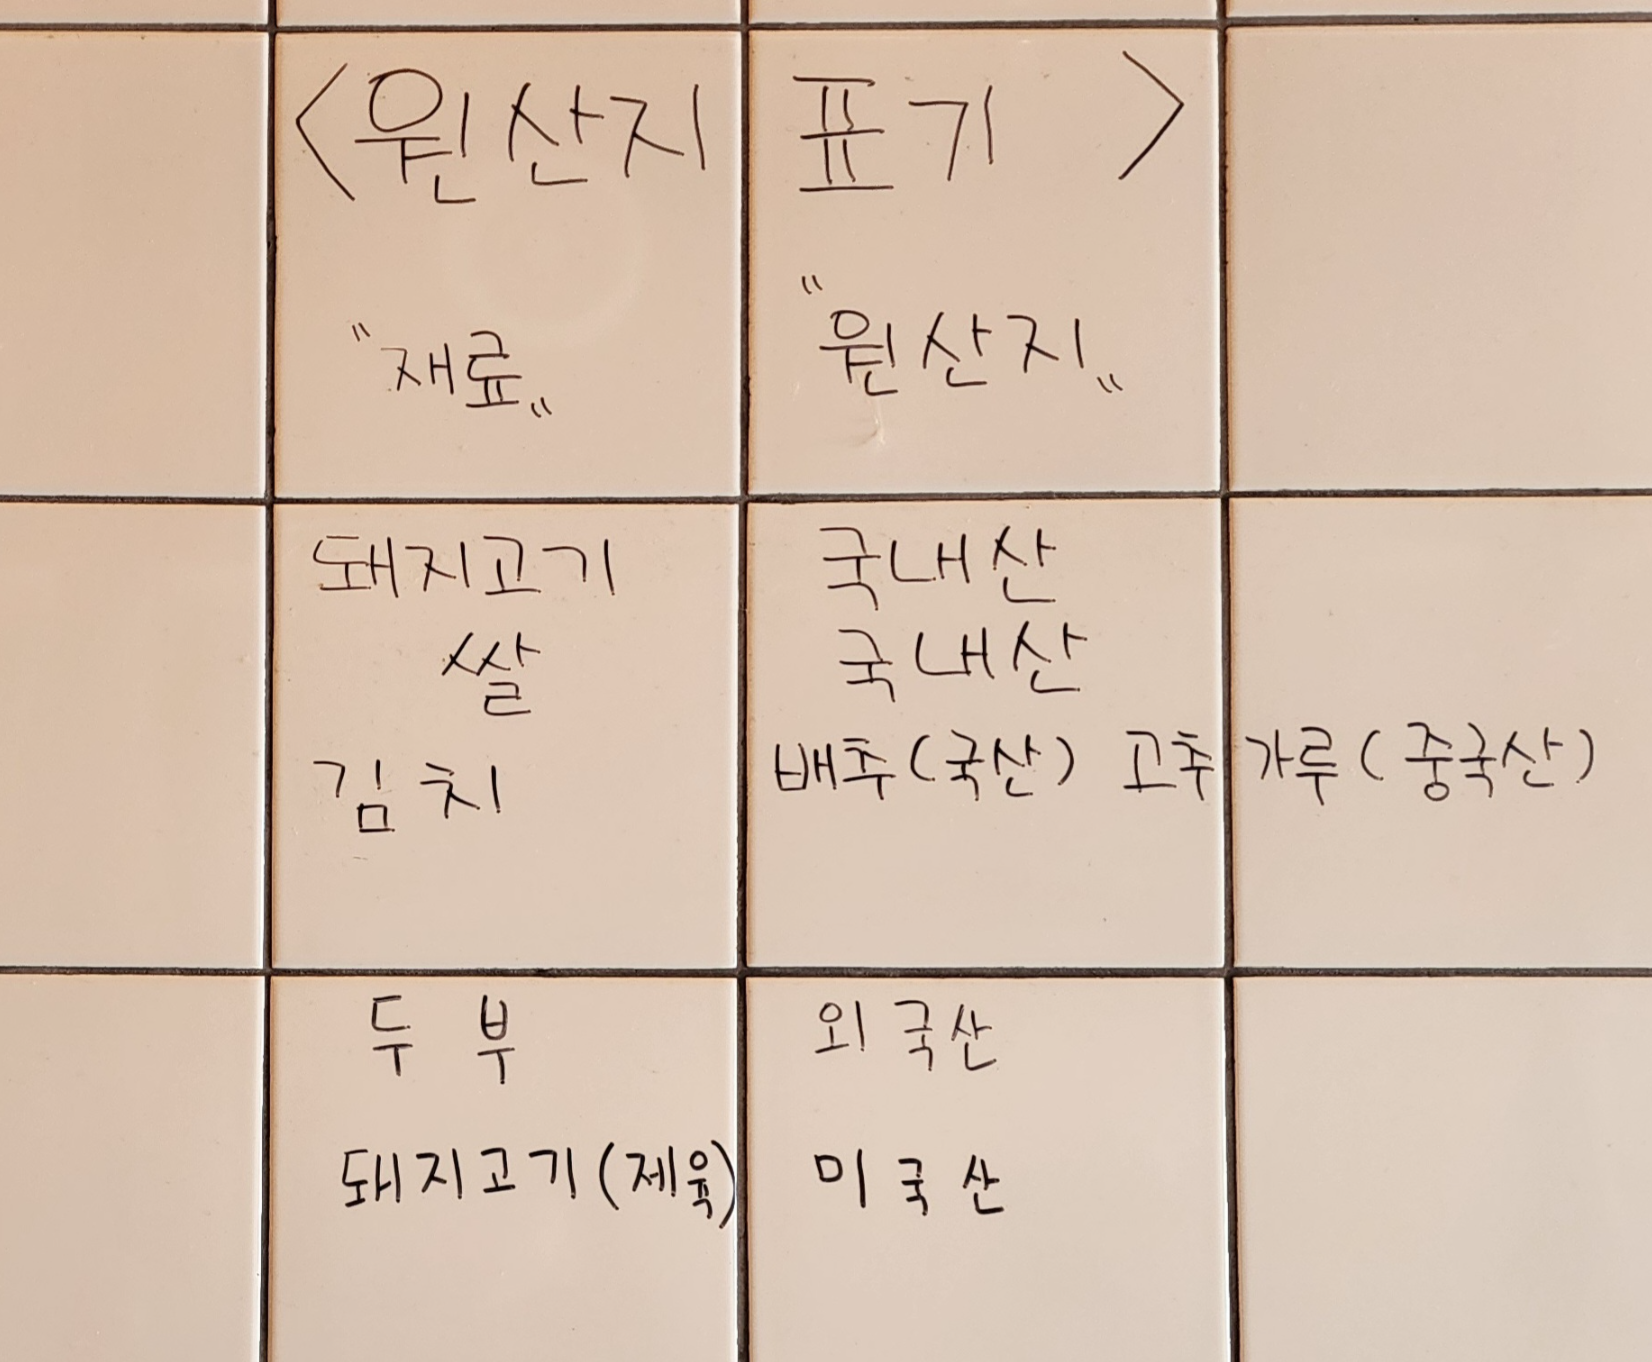 <원산지 표기 >
"재료„ "원산지„
돼지고기 국내산
쌀 국내산
김치 배추(국산) 고추가루(중국산)
두부 외국산
돼지고기(제육) 미국산